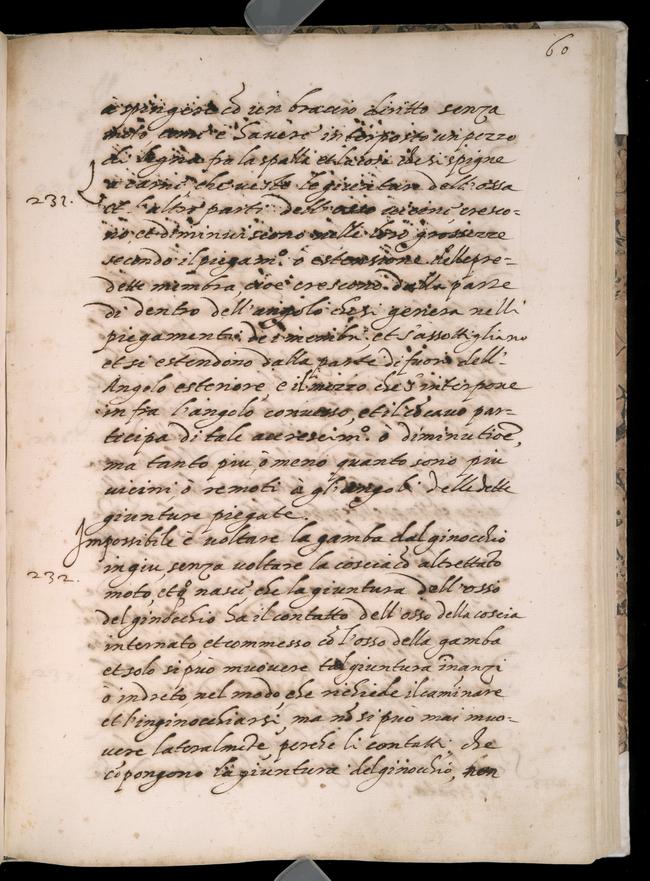 60
à spingere cõ un braccio diritto senza
moto come è havere interposto un pezzo
di legno fra la spalla et la cosa che si spigne
231.
La carne che veste le giunture dell'ossa
et l'altre parti dell'osso vicine cresco-
no, et diminuiscono nelle loro grossezze
secondo il piegam.º ò estensione delle pre-
dette membra, cioè crescono dalla parte
di dentro dell'angolo che si genera nelli
piegamenti de i membri et s'assottigliano
et si estendino dalla parte di fuori dell'
Angolo esteriore, e il mezzo che s'interpone
in fra l'angolo convesso, et il cõcavo par-
ticipa di tale accrescim.º ò diminutioẽ,
ma tanto piu ò meno quanto sono piu
vicini ò remoti à gli angoli delle dette
giunture piegate.
232.
Impossibile è voltare la gamba dal ginocchio
in giu senza voltare la coscia cõ altrettãto
moto, et q.º nasce che la giuntura dell'osso
del ginocchio ha il contatto dell'osso della coscia
internato et commesso cõ l'osso della gamba
et solo si può muovere tal giuntura inanzi
ò indreto nel modo, che richiede il caminare
et l'inginocchiarsi, ma nõ si può mai muo-
vere lateralmẽte perche li contatti, che
cõpongono la giuntura del ginochio, non